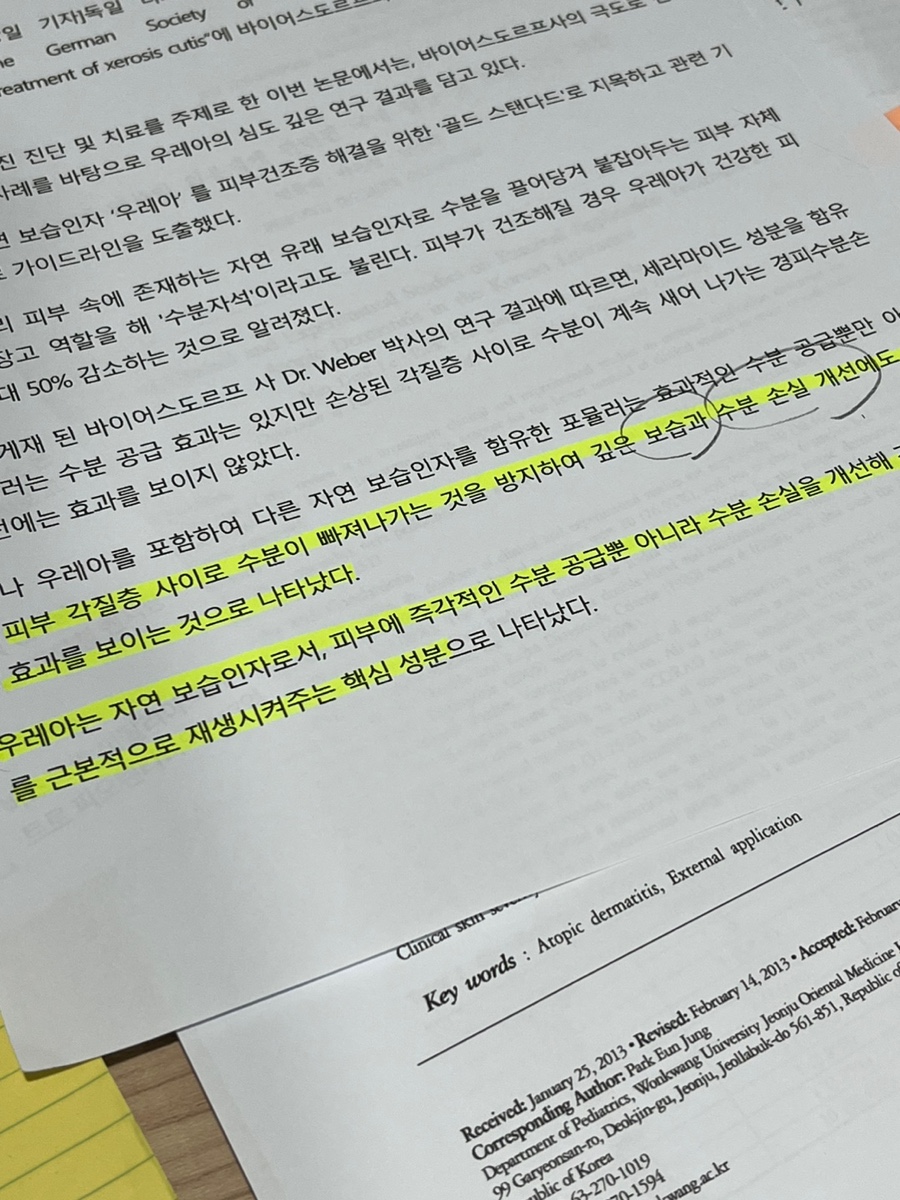 일 기자]독일
German Society of
reatment of xerosis cutis"에 바이어스도르프
진 진단 및 치료를 주제로 한 이번 논문에서는, 바이어스도르프사의 극도로
사례를 바탕으로 우레아의 심도 깊은 연구 결과를 담고 있다.
보습인자 '우레아' 를 피부건조증 해결을 위한 '골드 스탠다드'로 지목하고 관련 기
가이드라인을 도출했다.
피부 속에 존재하는 자연 유래 보습인자로 수분을 끌어당겨 붙잡아두는 피부 자체
장고 역할을 해 '수분자석'이라고도 불린다. 피부가 건조해질 경우 우레아가 건강한 피
대 50% 감소하는 것으로 알려졌다.
게재 된 바이어스도르프 사 Dr. Weber 박사의 연구 결과에 따르면, 세라마이드 성분을 함유
러는 수분 공급 효과는 있지만 손상된 각질층 사이로 수분이 계속 새어 나가는 경피수분손
선에는 효과를 보이지 않았다.
나 우레아를 포함하여 다른 자연 보습인자를 함유한 포뮬러는 효과적인 수분 공급뿐만 아
피부 각질층 사이로 수분이 빠져나가는 것을 방지하여 깊은 보습과 수분 손실 개선에도
효과를 보이는 것으로 나타났다.
우레아는 자연 보습인자로서, 피부에 즉각적인 수분 공급뿐 아니라 수분 손실을 개선해
를 근본적으로 재생시켜주는 핵심 성분으로 나타났다.
Clinical skin
Key words : Atopic dermatitis, External application
Received: January 25, 2013 • Revised: February 14, 2013 • Accepted: February
Corresponding Author: Park Eun Jung
Department of Pediatrics, Wonkwang University Jeonju Oriental Medicine
99 Garyeonsan-ro, Deokjin-gu, Jeonju, Jeollabuk-do 561-851, Republic of
public of Korea
63-270-1019
70-1594
kwang.ac.kr